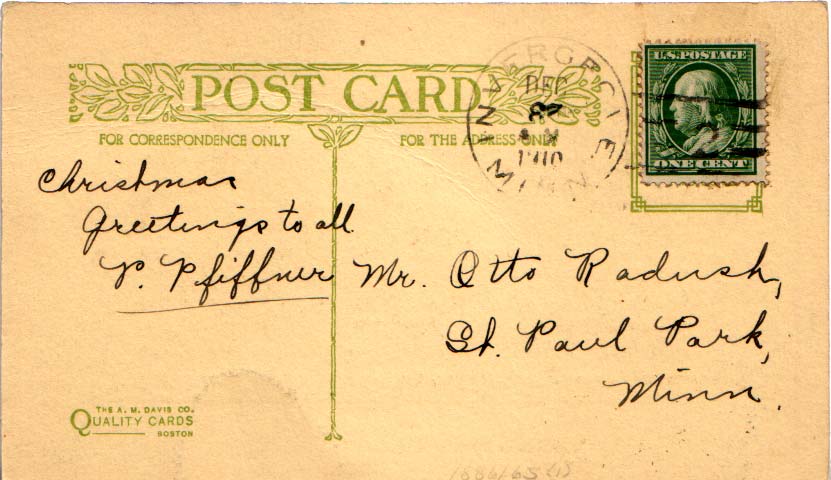 POST CARD
FOR CORRESPONDENCE ONLY
FOR THE ADDRESS ONLY
INVERGROVE
DEC
1910
MINN
U.S. POSTAGE
ONE CENT
Christmas
Greetings to all
P. Pfiffner
Mr. Otto Radush,
St. Paul Park,
Minn.
THE A. M. DAVIS CO.
QUALITY CARDS
BOSTON